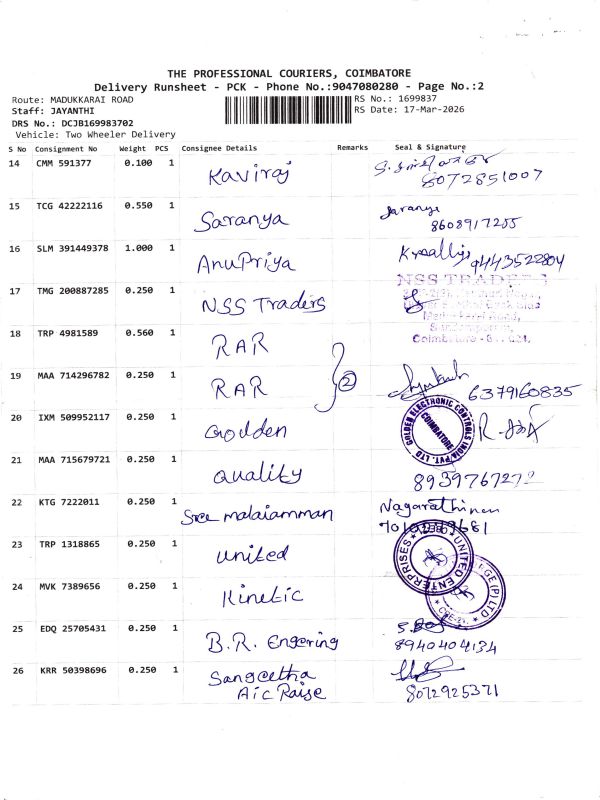 THE PROFESSIONAL COURIERS, COIMBATORE
Delivery Runsheet - PCK - Phone No.:9047080280 - Page No.:2
Route: MADUKKARAI ROAD
RS No.: 1699837
Staff: JAYANTHI
RS Date: 17-Mar-2026
DRS No.: DCJB169983702
Vehicle: Two Wheeler Delivery
S No Consignment No Weight PCS Consignee Details Remarks Seal & Signature
14 CMM 591377 0.100 1 Kaviraj
8072851007
15 TCG 42222116 0.550 1 Saranya Saranya
8608917255
16 SLM 391449378 1.000 1 AnuPriya
9443522804
17 TMG 200887285 0.250 1 NSS Traders NSS TRADERS
Coimbatore
18 TRP 4981589 0.560 1 RAR
19 MAA 714296782 0.250 1 RAR 2 6379160835
20 IXM 509952117 0.250 1 Godden GOLDEN ELECTRONIC CONTROLS INDIA PVT. LTD COIMBATORE
21 MAA 715679721 0.250 1 Quality 8939767272
22 KTG 7222011 0.250 1 Sree malaiamman Nagarathinam
23 TRP 1318865 0.250 1 United UNITED ENTERPRISES
24 MVK 7389656 0.250 1 Kinetic (P) LTD
25 EDQ 25705431 0.250 1 B.R. Engering
8940404134
26 KRR 50398696 0.250 1 Sangeetha
Aic Raise 8072925371